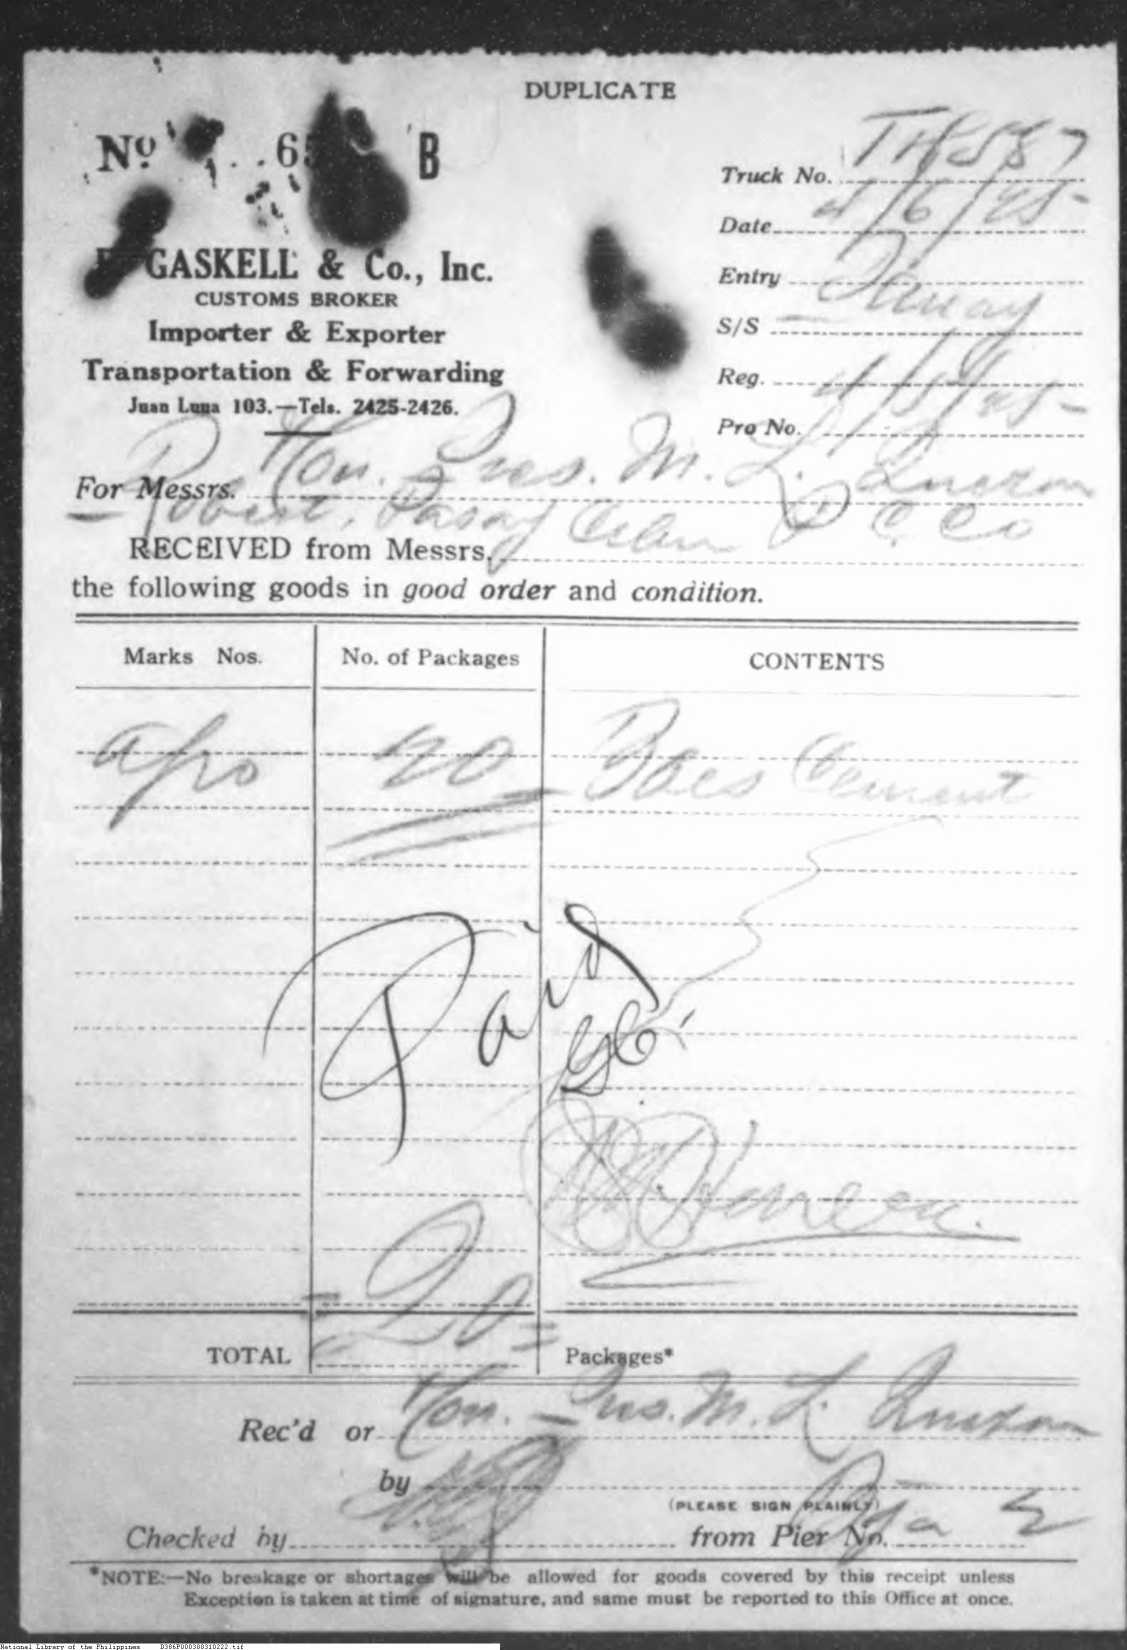 DUPLICATE
Nº 6 B
GASKELL & Co., Inc.
CUSTOMS BROKER
Importer & Exporter
Transportation & Forwarding
Juan Luna 103.—Tels. 2425-2426.
Truck No.
Date
Entry
S/S
Reg.
Pro No.
For Messrs. Hon. Pres. M. L. Quezon
Robert, Pasay
RECEIVED from Messrs. Cebu P. C. Co
the following goods in good order and condition.
Marks Nos. No. of Packages CONTENTS
apo 20 Bbls Cement
Paid
Herrera.
=20=
TOTAL Packages*
Rec'd or Hon. Pres. M. L. Quezon
by
(PLEASE SIGN PLAINLY)
Checked by from Pier No.
*NOTE:—No breakage or shortages will be allowed for goods covered by this receipt unless
Exception is taken at time of signature, and same must be reported to this Office at once.
National Library of the Philippines D386P000300310222.tif